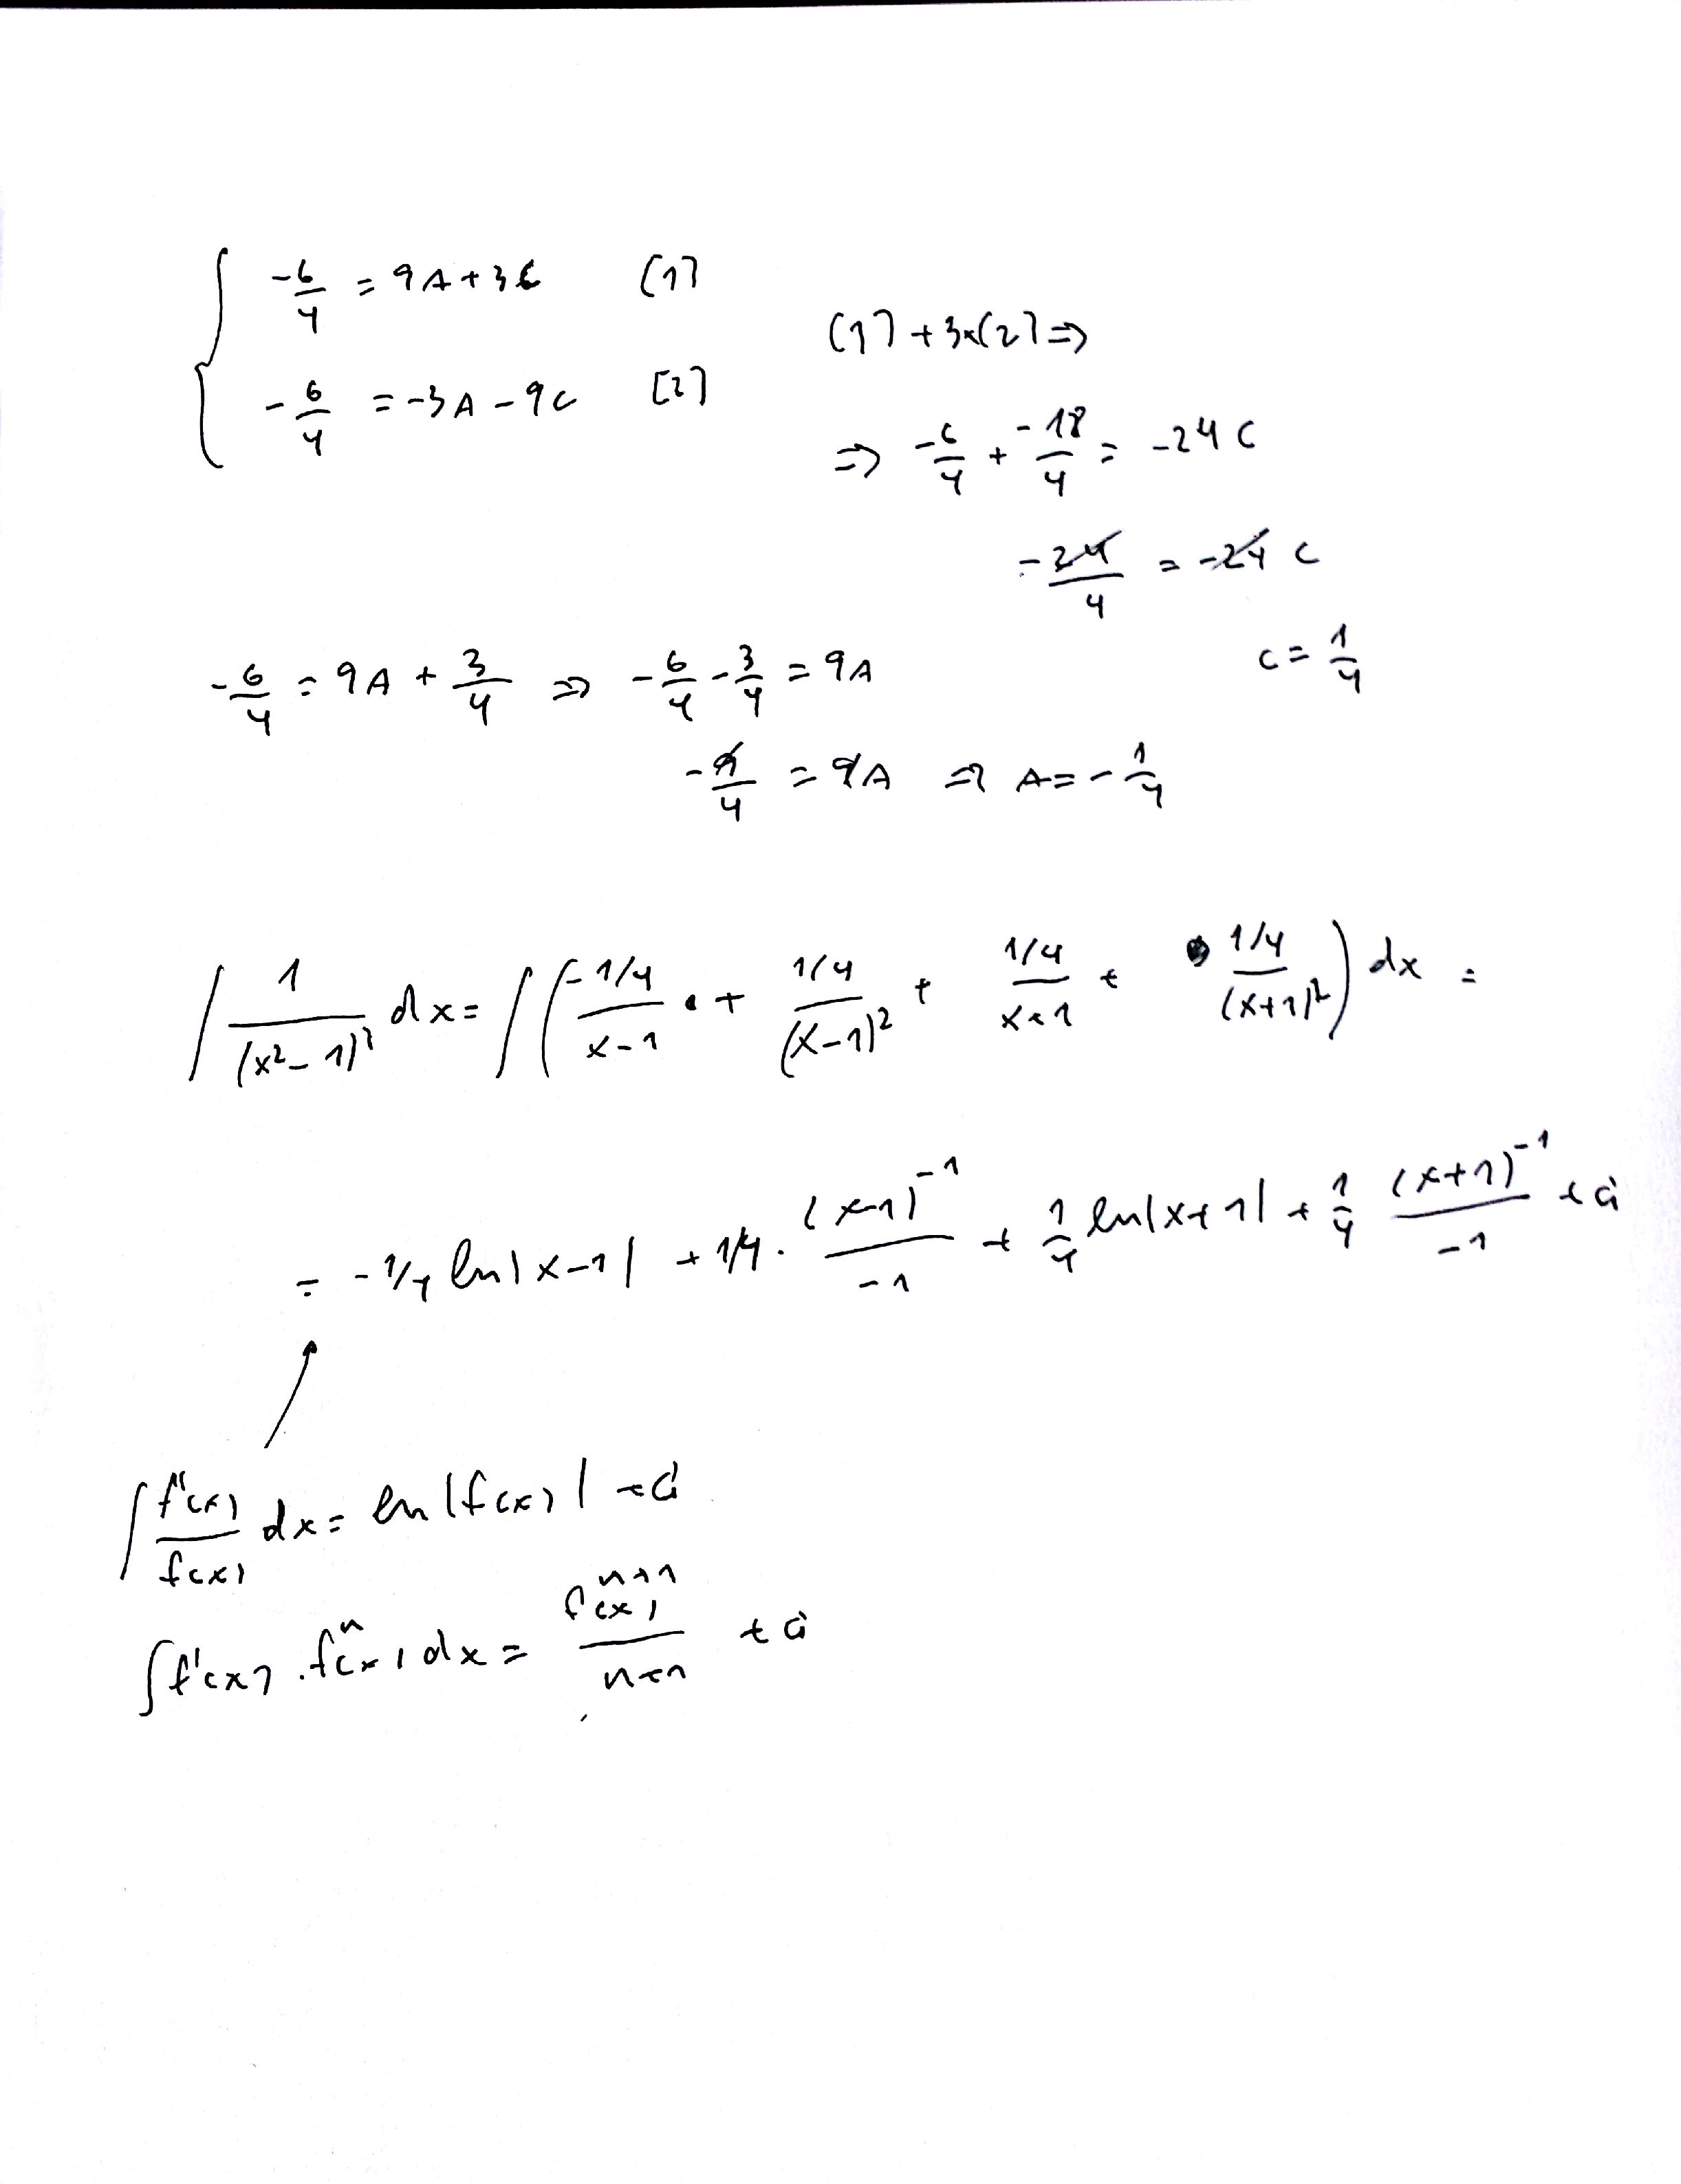 -6/4 = 9A + 3C (1)
(1) + 3×(2) ⇒
-6/4 = -3A - 9C (2)
⇒ -6/4 + -18/4 = -24C
-24/4 = -24C
C = 1/4
-6/4 = 9A + 3/4 ⇒ -6/4 - 3/4 = 9A
-9/4 = 9A ⇒ A = -1/4
∫ 1/(x² - 1)² dx = ∫ ( (-1/4)/(x-1) + (1/4)/(x-1)² + (1/4)/(x+1) + (1/4)/(x+1)² ) dx =
= -1/4 ln|x-1| + 1/4 · (x-1)⁻¹/-1 + 1/4 ln|x+1| + 1/4 (x+1)⁻¹/-1 + C
∫ f'(x)/f(x) dx = ln|f(x)| + C
∫ f'(x) · fⁿ(x) dx = fⁿ⁺¹(x)/n+1 + C